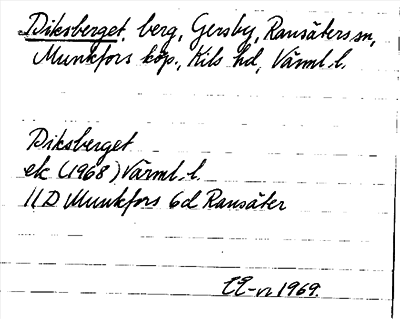 Diksberget, berg, Gersby, Ransäters sn,
Munkfors köp., Kils hd, Värml. l.
Diksberget
ek (1968) Värml. l.
11 D Munkfors 6d Ransäter
1969.